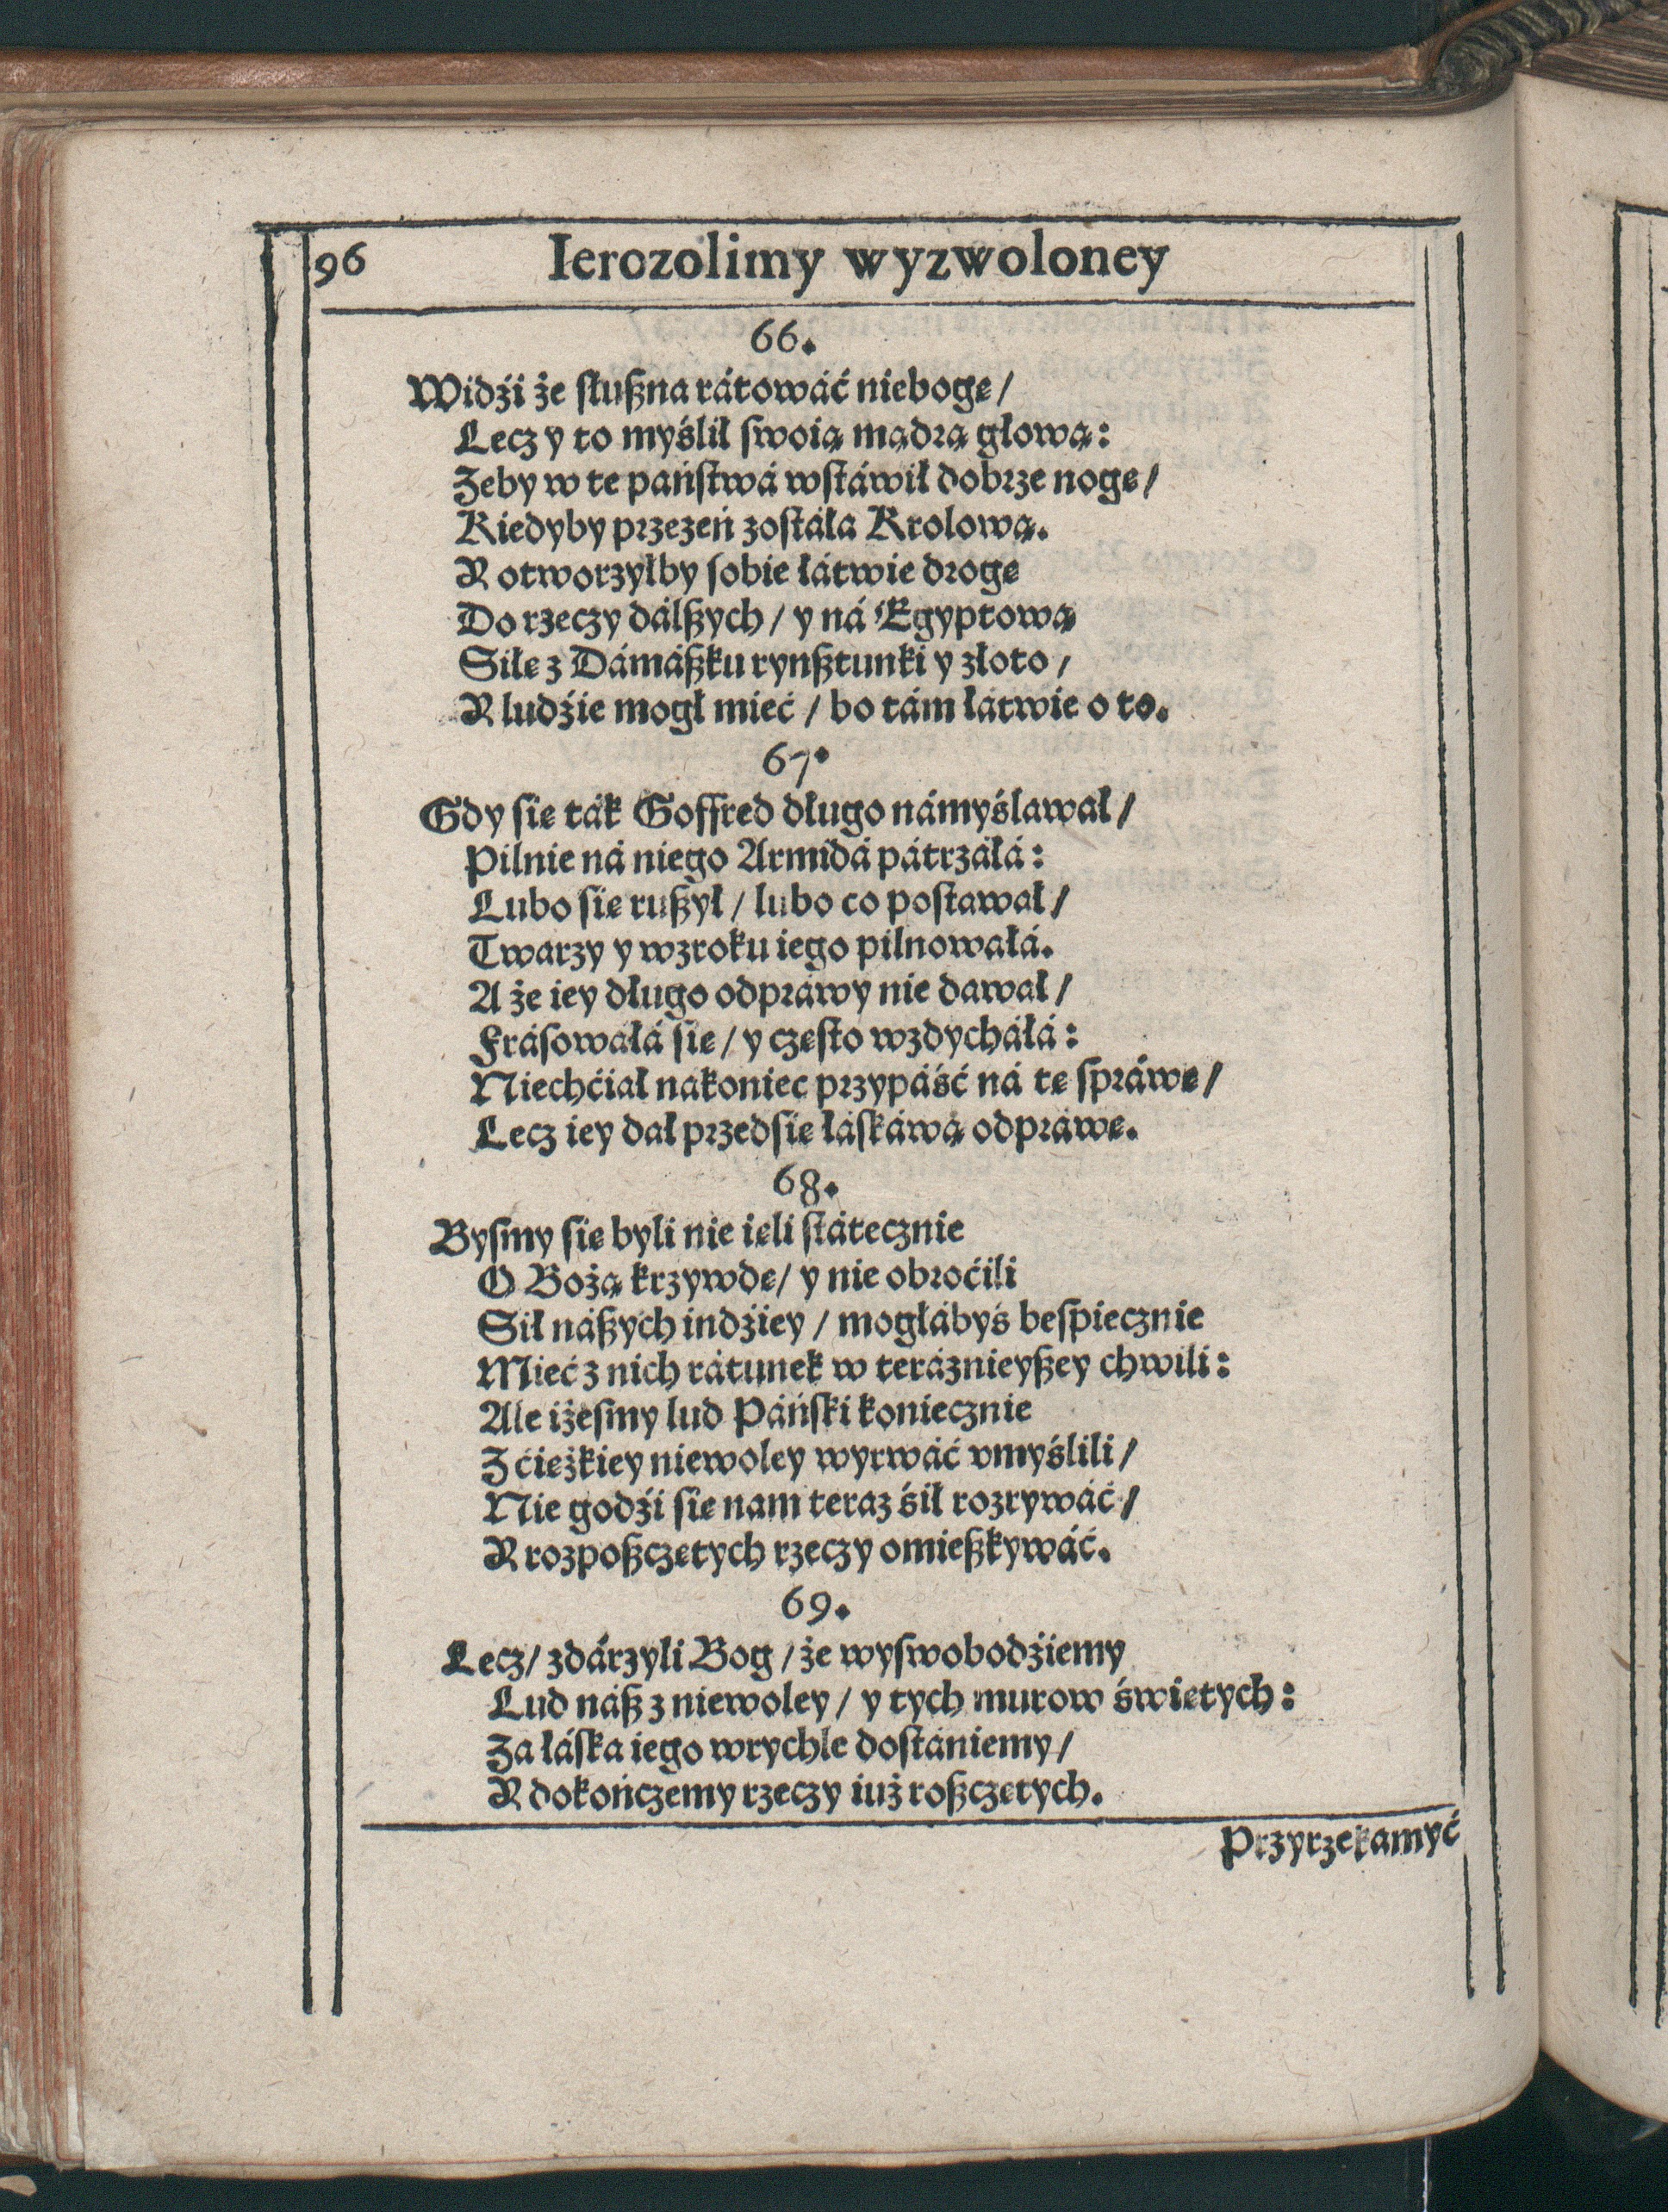 96 Ierozolimy wyzwoloney
66.
Widźi że słußna rátowáć niebogę/
Lecz y to myślił swoią mądrą głową:
Zeby w te páństwá wstáwił dobrze nogę/
Kiedyby przezeń zostáła Krolową.
Y otworzyłby sobie łátwie drogę
Do rzeczy dálßych/ y ná Egyptową
Siłę z Dámáßku rynßtunki y złoto/
Y ludźie mogł mieć/ bo tám łátwie o to.
67.
Gdy się ták Goffred długo námyślawał/
Pilnie ná niego Armidá pátrzáłá:
Lubo się rußył/ lubo co postawał/
Twarzy y wzroku iego pilnowáłá.
A że iey długo odpráwy nie dawał/
Frásowáłá się/ y często wzdycháłá:
Niechćiał nakoniec przypáść ná tę spráwę/
Lecz iey dał przedsię łáskáwą odpráwę.
68.
Bysmy się byli nie ięli státecznie
O Bożą krzywdę/ y nie obroćili
Sił náßych indźiey/ mogłábyś bespiecznie
Mieć z nich rátunek w teráznieyßey chwili:
Ale iżesmy lud Páński koniecznie
Z ćiężkiey niewoley wyrwáć vmyślili/
Nie godźi się nam teraz śił rozrywáć/
Y rozpoßczętych rzeczy omießkywáć.
69.
Lecz/ zdárzyli Bog/ że wyswobodźiemy
Lud náß z niewoley/ y tych murow świętych:
Za łáska iego wrychle dostániemy/
Y dokończemy rzeczy iuż roßczętych.
Przyrzekamyć